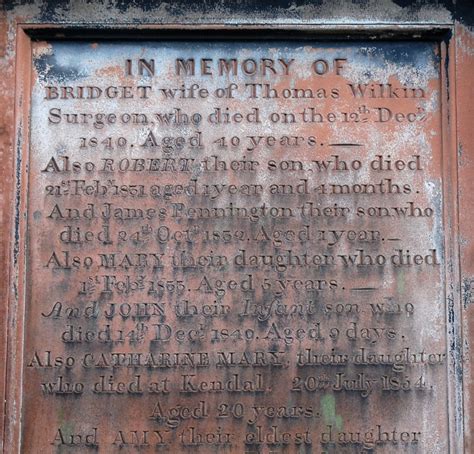 IN MEMORY OF
BRIDGET wife of Thomas Wilkin
Surgeon, who died on the 12th Decr
1840. Aged 40 years.
Also ROBERT, their son, who died
21st Febry 1831 aged 1 year and 4 months.
And James Pennington their son, who
died 24th Octr 1832. Aged 1 year.
Also MARY their daughter who died
1st Febry 1835. Aged 5 years.
And JOHN their Infant son who
died 14th Decr 1840. Aged 9 days.
Also CATHARINE MARY, their daughter
who died at Kendal. 20th July 1854.
Aged 20 years.
And AMY, their eldest daughter